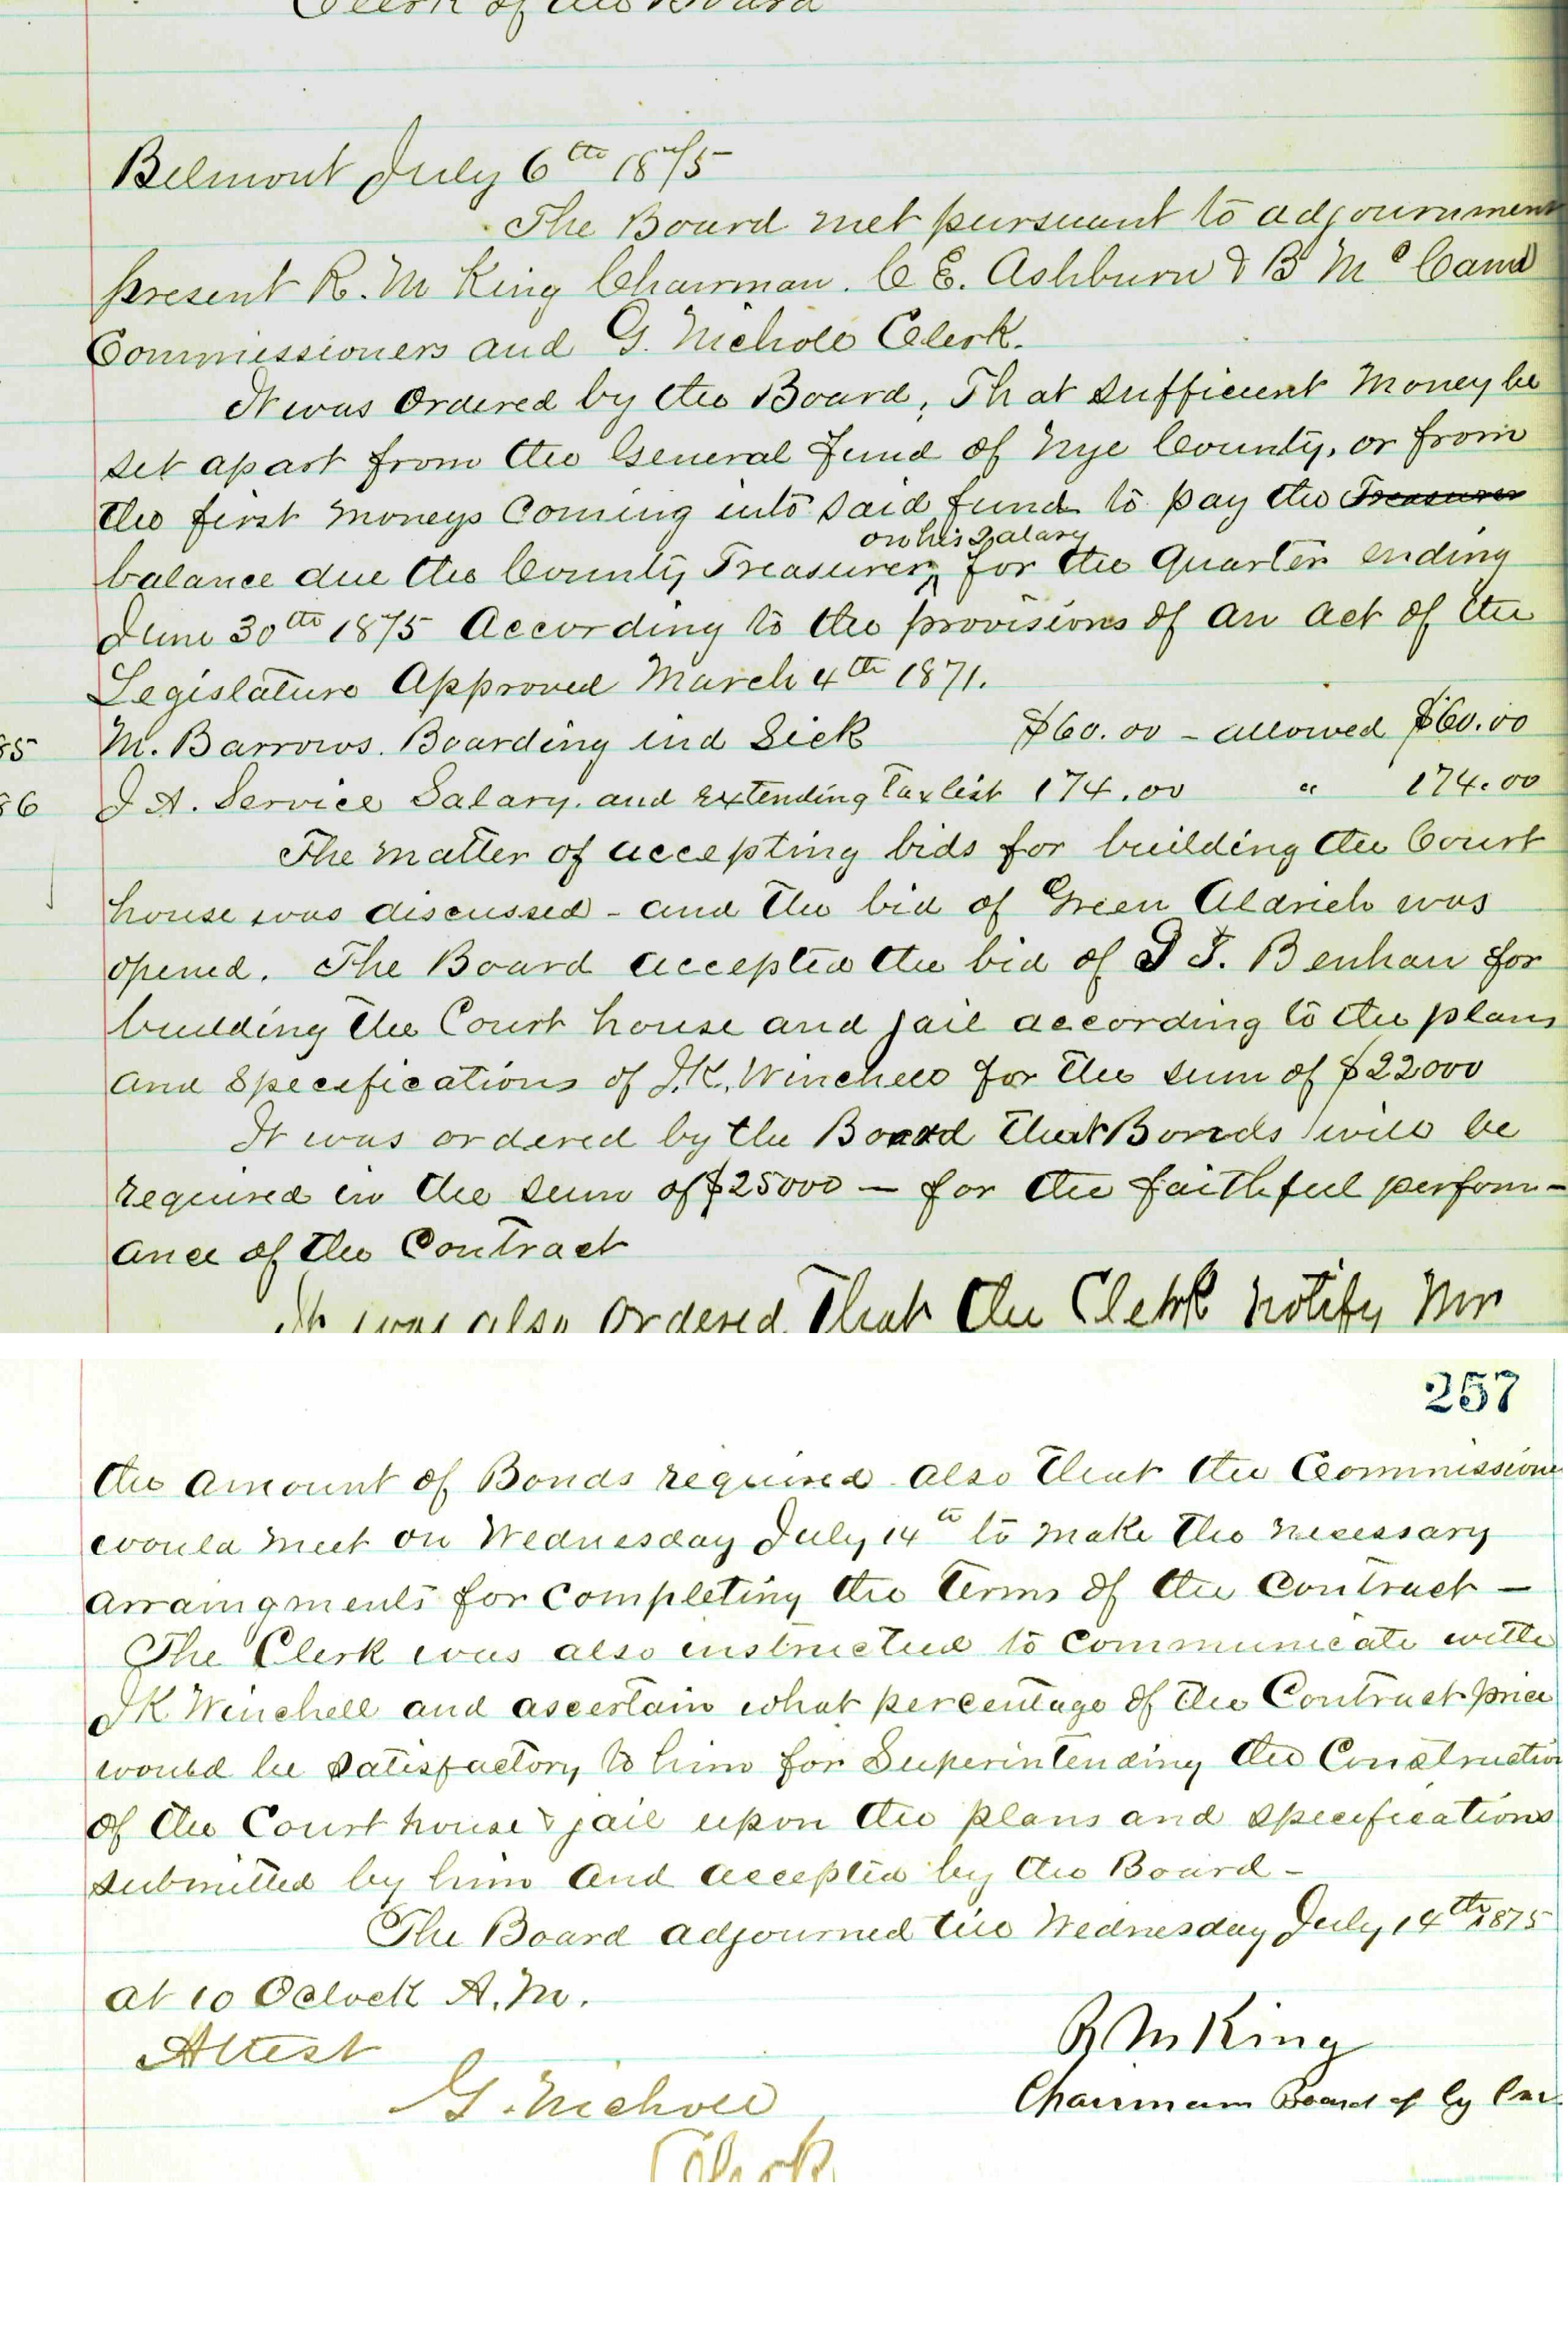 Clerk of the Board
Belmont July 6th 1875
The Board met pursuant to adjournment
present R. M King Chairman. C E. Ashburn & B Mc Cann
Commissioners and G. Nicholl Clerk.
It was Ordered by the Board, That sufficient Money be
set apart from the General Fund of Nye County, or from
the first moneys Coming into said fund to pay the Treasurer
on his Salary
balance due the County Treasurer, for the Quarter ending
June 30th 1875 According to the provisions of an act of the
Legislature Approved March 4th 1871.
85 M. Barrows. Boarding ind Sick $60.00 - allowed $60.00
86 J A. Service Salary. and extending Tax list 174.00 " 174.00
The matter of accepting bids for building the Court
house was discussed - and the bid of Green Aldrich was
opened. The Board accepted the bid of J. Benham for
building the Court house and jail according to the plans
and Specifications of J.K. Winchell for the sum of $22000
It was ordered by the Board that Bonds will be
required in the sum of $25000 - for the faithful perform-
ance of the Contract
It was also ordered That the Clerk notify Mr
257
the amount of Bonds required. also that the Commissione
would meet on Wednesday July 14th to make the necessary
arraingments for completing the terms of the contract -
The Clerk was also instructed to communicate with
J K Winchell and ascertain what percentage of the Contract price
would be satisfactory to him for Superintending the Construction
of the Court house & jail upon the plans and specifications
submitted by him and accepted by the Board -
The Board adjourned till Wednesday July 14th 1875
at 10 Oclock A.M.
Attest
R M King
G. Nicholl
Chairman Board of Cy
Clerk